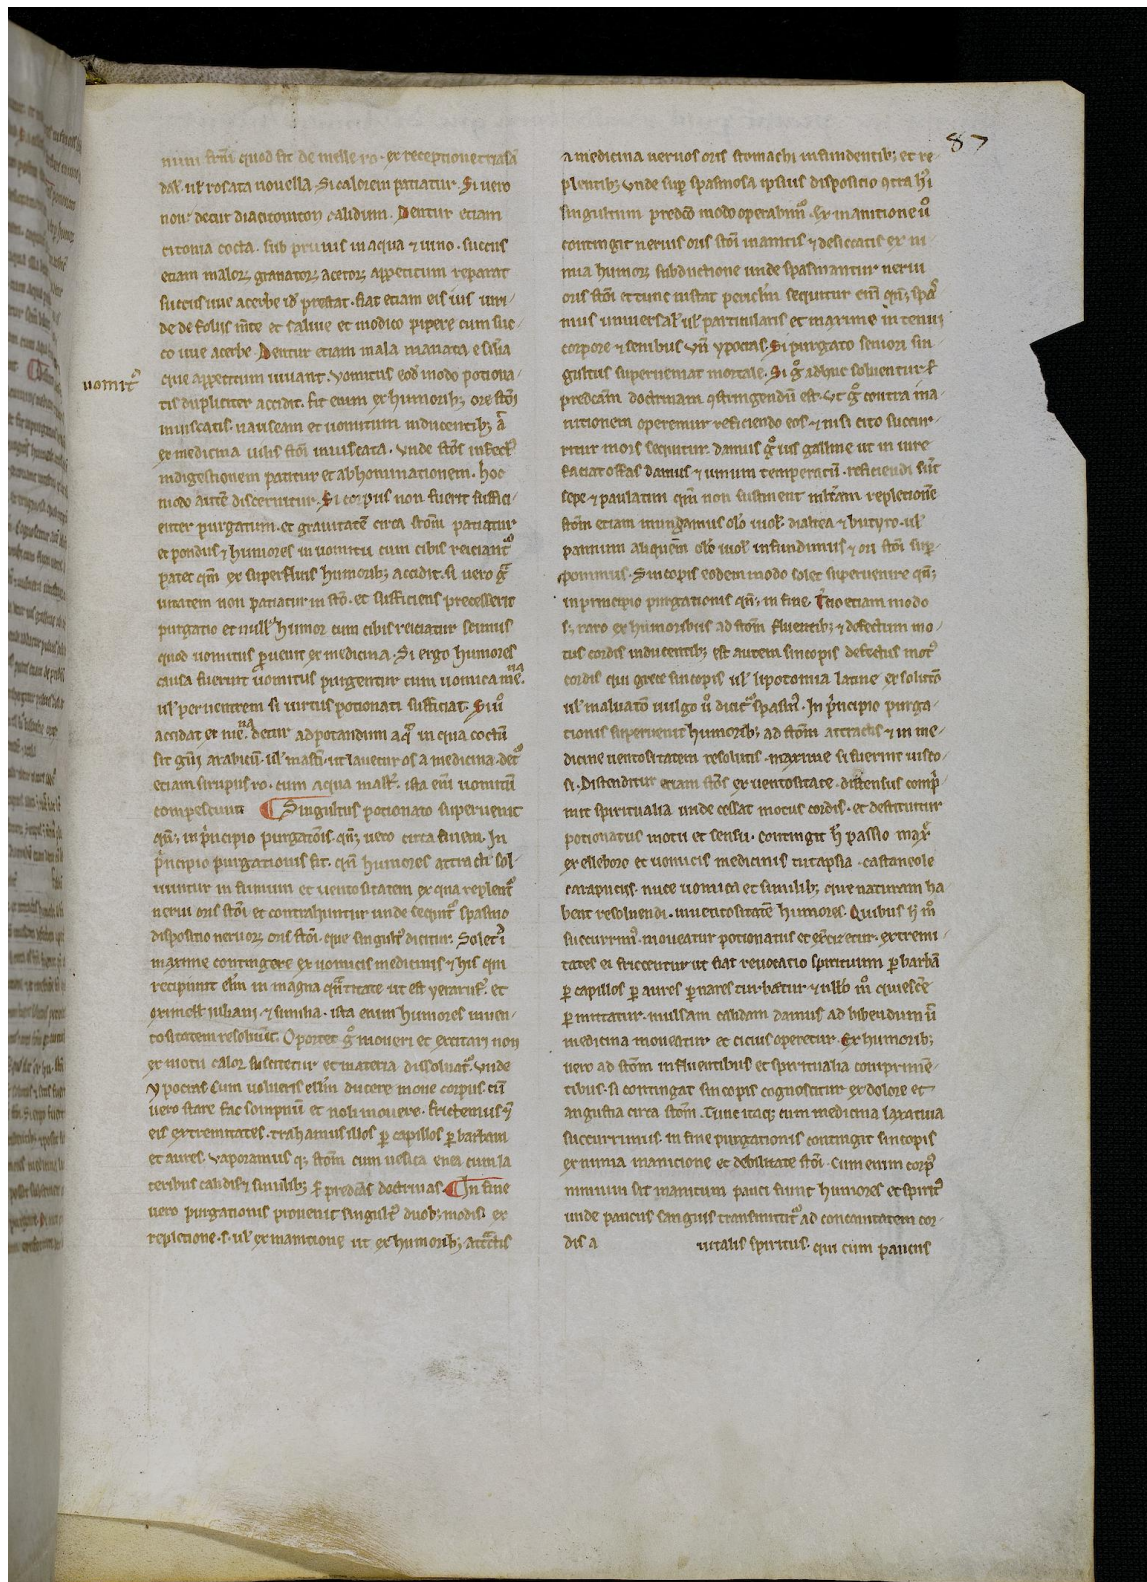 87
num stom̄ quod fit de melle ro· et receptione triasā
dal᷒ ul᷒ rosata nouella. Si calorem patiatur. Si uero
non· detur diacitoniton calidum. Dentur etiam
citonia cocta. sub pruuis in aqua ⁊ uino. succus
etiam maloꝝ granatoꝝ acetoꝝ appetitum reparat
succus uue acerbe id᷒ prestat. fiat etiam eis ius uiri-
de de foliis mīte et saluie et modico pipere cum suc-
co uue acerbe. Dentur etiam mala manata
que appetitum iuuant. Vomitus eod̄ modo potiona-
uomitꝰ
tis dupliciter accidit. fit enim ex humoribꝫ ore stoī
inuiscatis. nauseam et uomitum inducentibꝫ
ex medicina uilis stoī inuiscata. vnde stoīs infect᷒
indigestionem patitur et abhominationem. hoc
modo autē discernitur. Si corpus non fuerit suffici-
enter purgatum. et grauitatē circa stom̄ patiatur
et pondus ⁊ humores in uomitu cum cibis reiciant᷑
patet qm̄ ex superfluis humoribꝫ accidit. si uero gͣ
uitatem non patiatur in sto̅. et sufficiens precesserit
purgatio et null᷒ humor cum cibis reiciatur scimus
quod uomitus ꝓuenit ex medicina. Si ergo humores
causa fuerint uomitus purgentur cum uomica me.ⁿᵃ
ul᷒ per uentrem si uirtus potionati sufficiat. Si ū
accidat ex me.ⁿᵃ detur ad potandum aqͣ in qua coctū
sit gūi arabicū. ul᷒ masti. ut lauetur os a medicina. det᷑
etiam sirupus ro. cum aqua mast᷒. ista em̄ uomitū
compescunt ¶ Singultus potionato superuenit
qn̄ꝫ in pͥncipio purgatōis. qn̄ꝫ uero circa finem. In
pͥncipio purgationis fit. qn̄ humores attracti sol-
uuntur in fumum et uentositatem ex qua replent᷑
nerui oris stoī et contrahuntur unde sequit᷑ spasmo
dispositio neruoꝝ oris stoī. que singultꝰ dicitur. Solet
maxime contingere ex uomicis medicinis ⁊ his qui
recipiunt elm̄ in magna qn̄titate ut est yerarus᷒. et
oximell᷒ iuliani. ⁊ similia. ista enim humores in uen-
tositatem resoluūt. Oportet gͦ moueri et excitari non
ex motu calor suscitetur et materia dissoluat᷑. Vnde
ypocras Cum volueris ellm̄ ducere moue corpus. cū
uero stare fac sompnū et noli mouere. frictemus
eis extremitates. trahamus illos ꝑ capillos ꝑ barbam
et aures. vaporamus qꝫ stom̄ cum uesica enea cum la
teribus calidis ⁊ similibꝫ ẜ predc̄as doctrinas. ¶ In fine
uero purgationis prouenit singultꝰ duobꝫ modis. ex
repletione .s. ul᷒ ex inanitione ut ex humoribꝫ attͣctis
a medicina neruos oris stomachi infundentibꝫ et re-
plentibꝫ vnde supͥ spasmosa ipsius dispositio
singultum predc̄o modo operabim᷒. Ex inanitione ū
contingit neruis oris stoī inanitis ⁊ desiccatis ex ni-
mia humoꝝ subductione unde spasmantur nerui
oris stoī et tunc instat pericl̄m sequitur em̄ qn̄ꝫ spa
mus uniuersal᷒ ul᷒ particularis et maxime in tenui
corpore ⁊ senibus Vn̄ ypocras. Si purgato seniori sin-
gultus superueniat mortale. Si gͦ adhuc soluentur ẜ
predcām doctrinam ꝯstringendū est. vt gͦ contra ina-
nitionem operemur reficiendo eos ⁊ nisi cito succur-
ritur mors sequitur. damus gͦ ius galline ut in iure
faciat offas damus ⁊ uinum temperatū. reficiendi sūt
sepe ⁊ paulatim qm̄ non sustinent mltam repletionē
stom̄ etiam inungamus oleo uiol᷒. dialtea ⁊ butyro. ul᷒
pannum aliquem oleo uiol᷒ infundimus ⁊ ori stoī sup-
ponimus. Sincopis eodem modo solet superuenire qn̄ꝫ
in principio purgationis qn̄ꝫ in fine. Tcio etiam modo
sꝫ raro ex humoribus ad stom̄ fluentibꝫ ⁊ defectum mo-
tus cordis inducentibꝫ est autem sincopis defectus motꝰ
cordis qui grece sincopis ul᷒ lipotomia latine exsolutō
ul᷒ maluatō uulgo ū dicit᷑ spasm᷒. In pͥncipio purga-
tionis superuenit humoribꝫ ad stom̄ attractis ⁊ in me-
dicine uentositatem resolutis. maxime si fuerint uisco-
si. Distenditur etiam stoīs ex uentositate. distensus comp̄-
mit spiritualia unde cessat motus cordis. et destituitur
potionatus motu et sensu. contingit h̄ passio max᷒
ex elleboro et uomicis medicinis ut tapsia. castaneole
catapuciis. nuce uomica et similibꝫ que naturam ha
bent resoluendi. in uentositatē humores. Quibus h̄ m̊
succurrim᷒. moueatur potionatus et exͨitetur. extremi-
tates ei fricentur ut fiat reuocatio spirituum ꝑ barbā
ꝑ capillos ꝑ aures ꝑ nares turbetur ⁊ nullo m̊ quiesce
ꝑmittatur. mulsam calidam damus ad bibendum ū
medicina moueatur et cicius operetur. Ex humoribꝫ
uero ad stom̄ influentibus et spiritualia conprimē-
tibus. si contingat sincopis cognoscitur ex dolore et
angustia circa stom̄. Tunc itaqꝫ cum medicina laxatiua
succurrimus. in fine purgationis contingit sincopis
ex nimia inanicione et debilitate stoī. cum enim corpꝰ
nimium sit inanitum pauci fiunt humores et spiritꝰ
unde paucus sanguis transmittit᷑ ad concauitatem cor-
dis a uitalis spiritus. qui cum paucus